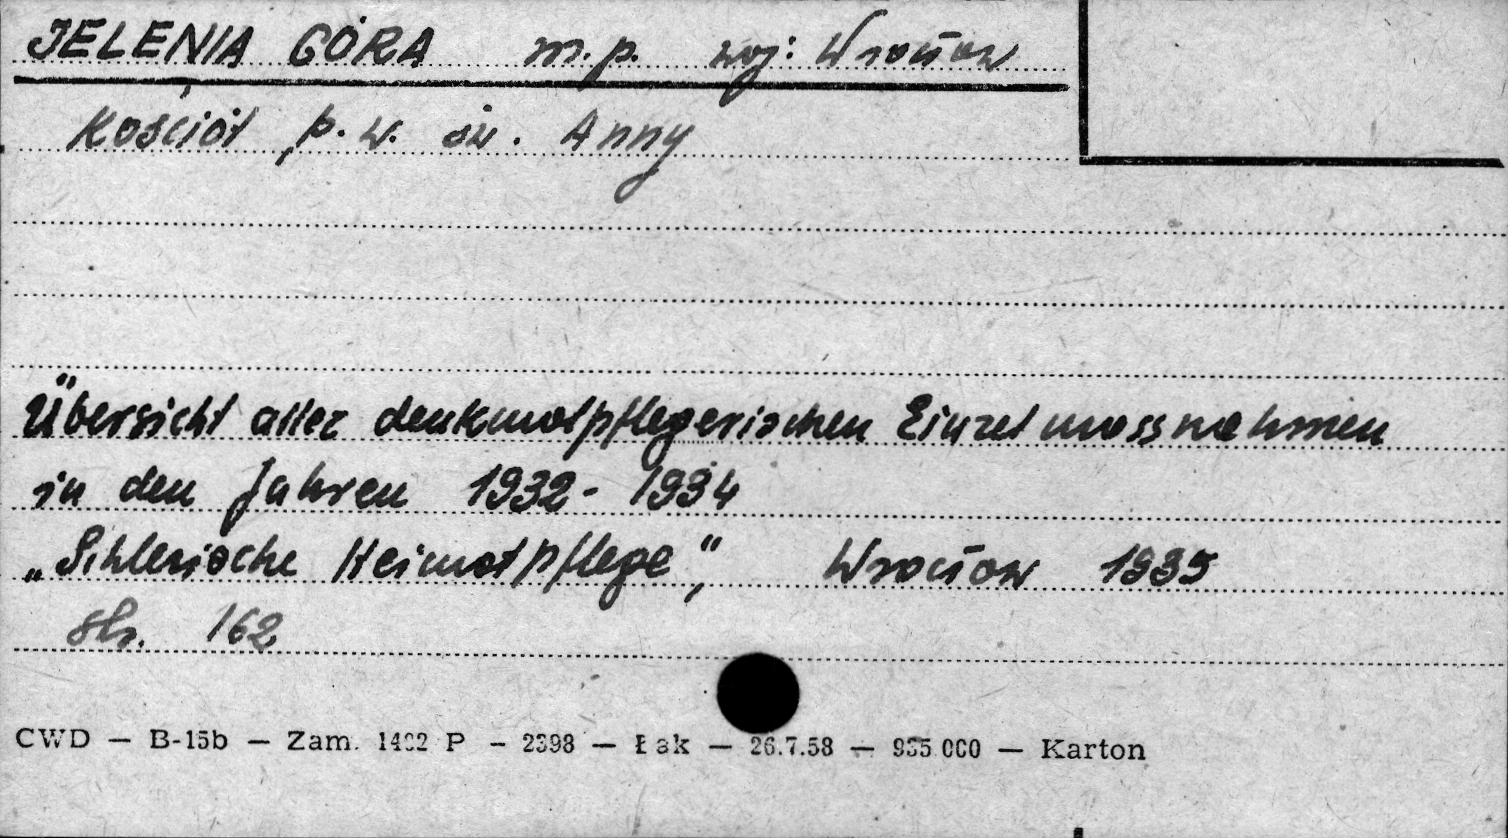 JELENIA GÓRA m.p. woj: Wrocław
Kościół p.w. św. Anny
Übersicht aller denkmalpflegerischen Einzelmassnahmen
in den Jahren 1932 - 1934
„Schlesische Heimatpflege”, Wrocław 1935
str. 162
CWD — B-15b — Zam. 1402 P — 2398 — Łak — 26.7.58 — 935.000 — Karton